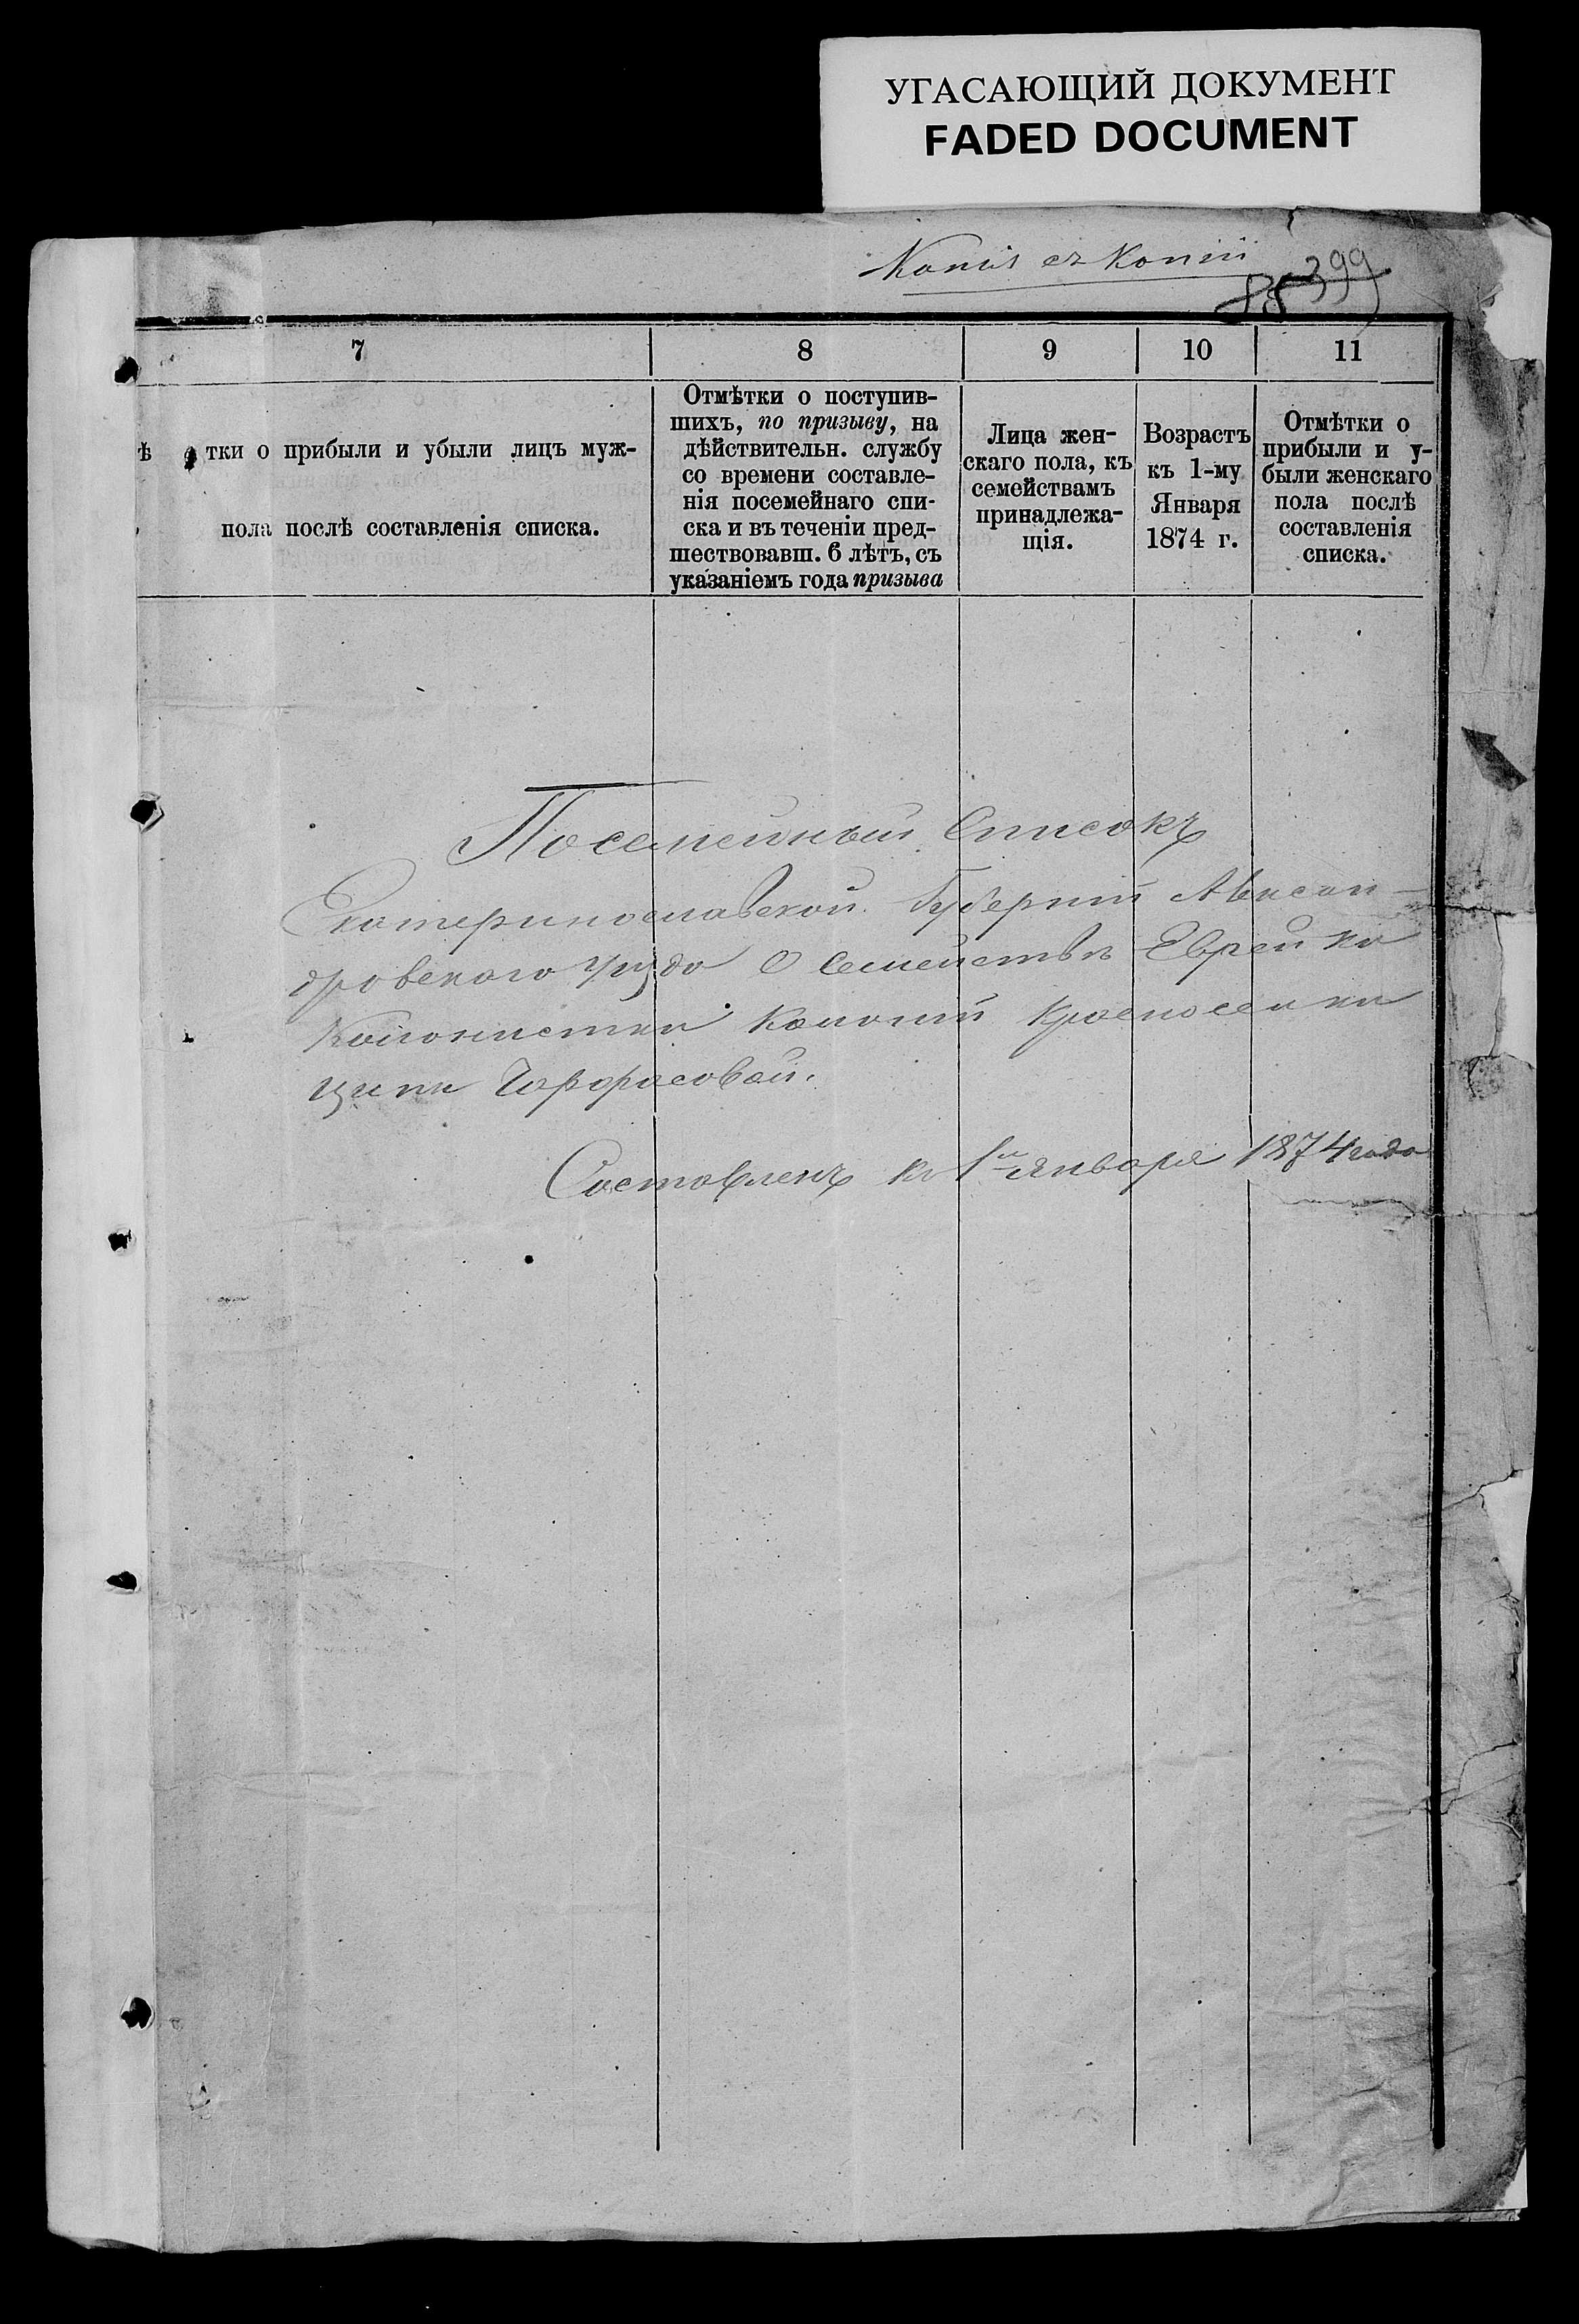 УГАСАЮЩИЙ ДОКУМЕНТ
FADED DOCUMENT
Копія съ Копіи
399
7 8 9 10 11
тки о прибыли и убыли лицъ муж-
пола послѣ составленія списка.
Отмѣтки о поступив-
шихъ, по призыву, на
дѣйствительн. службу
со времени составле-
нія посемейнаго спи-
ска и въ теченіи пред-
шествовавш. 6 лѣтъ, съ
указаніемъ года призыва
Лица жен-
скаго пола, къ
семействамъ
принадлежа-
щія.
Возрастъ
къ 1-му
Января
1874 г.
Отмѣтки о
прибыли и у-
были женскаго
пола послѣ
составленія
списка.
Посемейный Списокъ
Екатеринославской Губерніи Алексан-
дровского уѣзда О Семействѣ Еврейки
Колонистки Колоніи Красноселки
Ципи
Составленъ къ 1му Января 1874 года